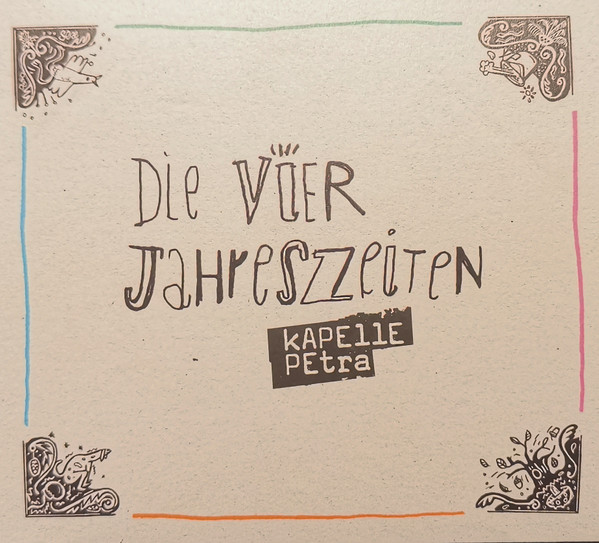 Die VIER
JaHreSZeiTeN
KAPElle
PEtra